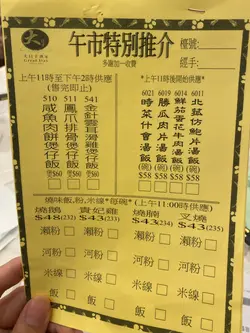 午市特別推介
檯號:
多謝加一收費
經手:
上午11時至下午2時供應
(售完即止)
510 511 541
鹹魚肉餅煲仔飯 $60
鳳爪排骨煲仔飯 $60
金針雲耳滑雞煲仔飯 $60
*上午11時後開始供應*
6021 6019 6014 6011
時菜什會湯飯 (碗) $58
勝瓜肉片湯飯 (碗) $58
鮮茄蛋花牛肉湯飯 (碗) $58
北菰仿鮑片湯飯 (碗) $58
燒味飯,粉,米線*每碗* (上午11:00時供應)
燒鵝 貴妃雞 燒腩 叉燒
$48(232) $43(233) $43(234) $43(235)
瀨粉 瀨粉 瀨粉 瀨粉
河粉 河粉 河粉 河粉
米線 米線 米線 米線
飯 飯 飯 飯